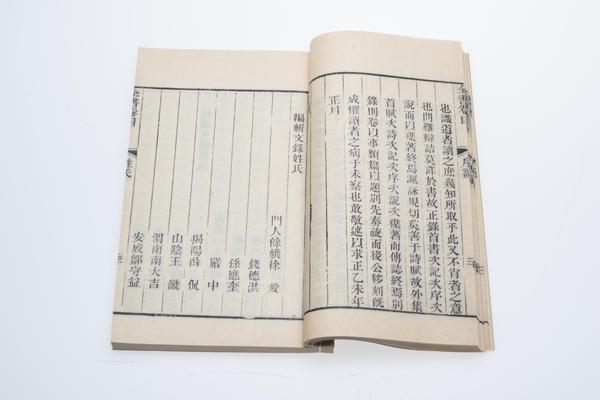 全書卷目
序說
也識道者讀之庶幾知所取乎此又不肖者之意
也問難辯詰莫詳於書故正錄首書次記次序次
說而以襍著終焉諷詠規切莫善于詩賦故外集
首賦次詩次記次序次說次襍著而傳誌終焉別
錄則卷以事類篇以題別先奏疏而後公移刻旣
成懼讀者之病于未察也敢敬述以求正乙未年
正月
編輯文錄姓氏
門人餘姚徐 愛
錢德洪
孫應奎
嚴 中
揭陽薛 侃
山陰王 畿
渭南南大吉
安成鄒守益
全書卷目
姓氏